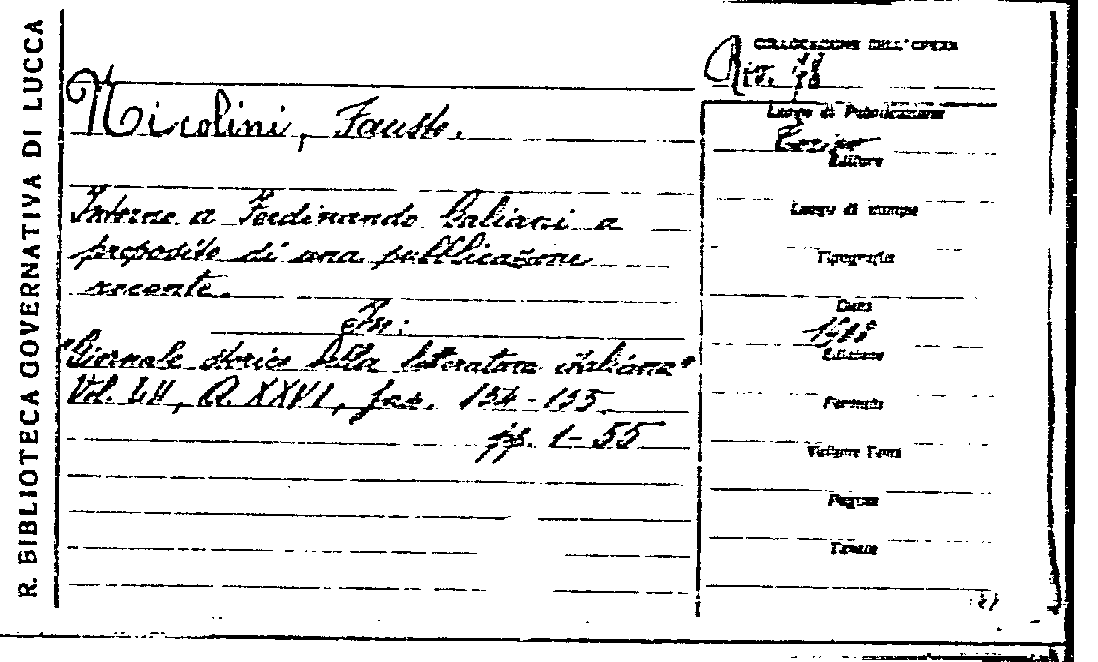 R. BIBLIOTECA GOVERNATIVA DI LUCCA
COLLOCAZIONE DELL'OPERA
Riv. 18
Nicolini, Fausto.
Luogo di Pubblicazione
Torino
Editore
Intorno a Ferdinando Galiani a
proposito di una pubblicazione
recente.
In:
"Giornale storico della letteratura italiana"
Vol. LII, A. XXVI, fas. 154-155.
pp. 1-55
Luogo di stampa
Tipografia
Data
1908
Edizione
Formato
Volume Tomi
Pagine
Tavole